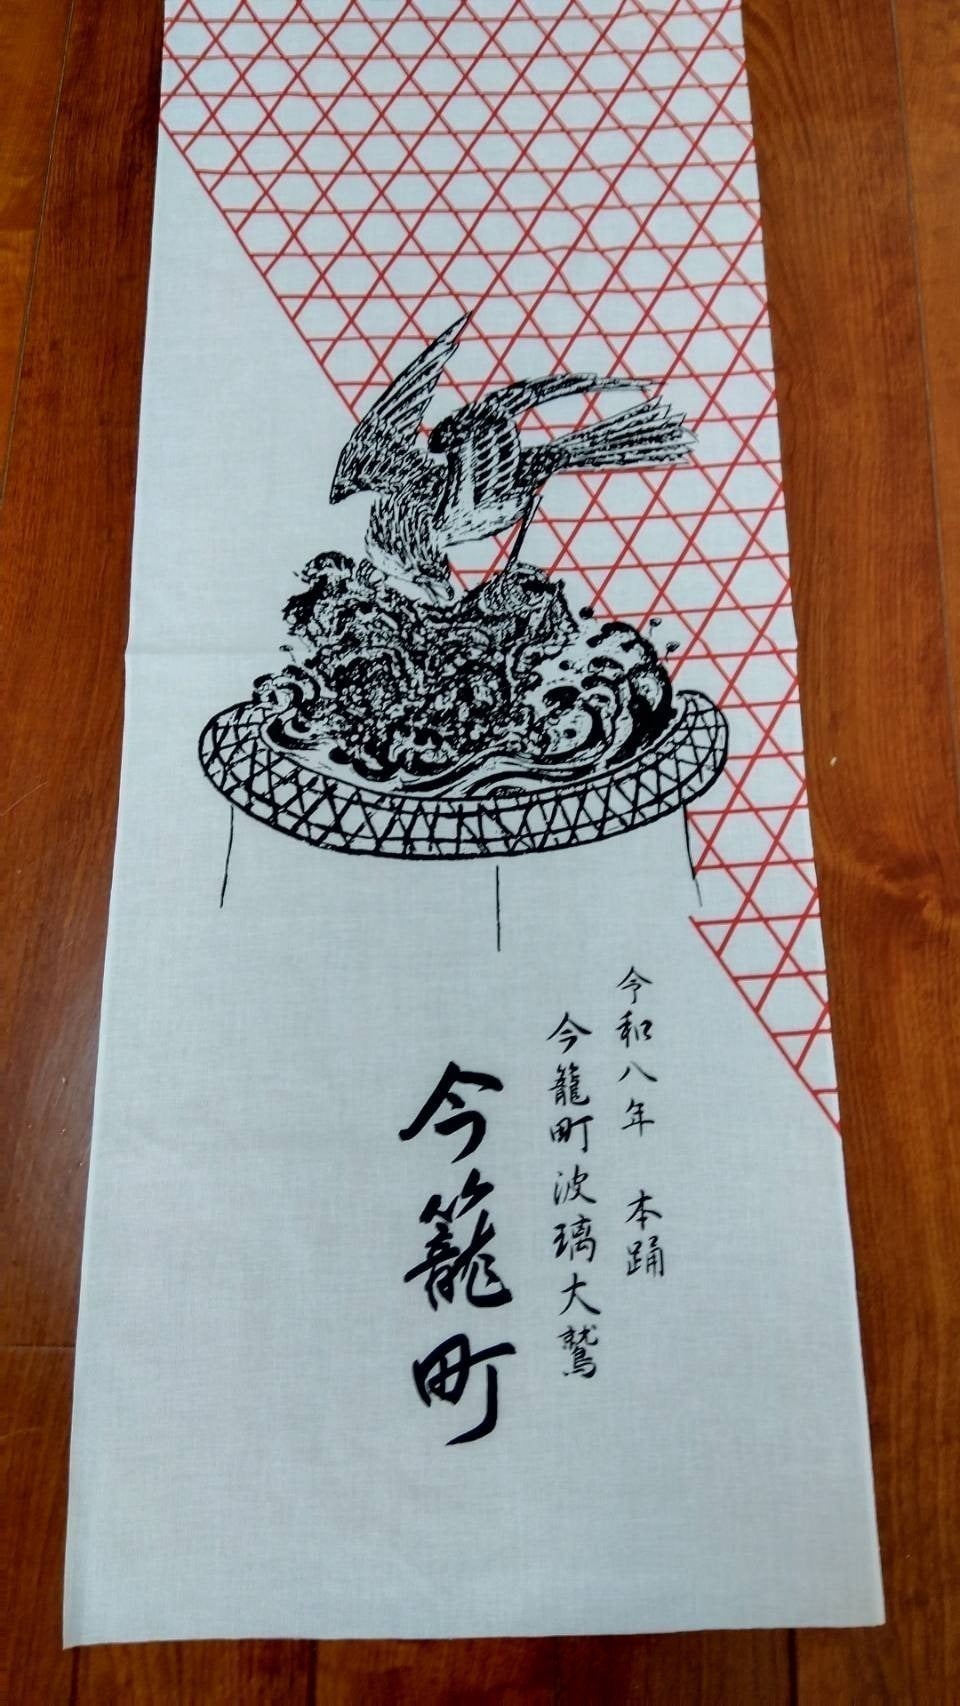 令和八年 本踊
今籠町波璃大鷲
今籠町